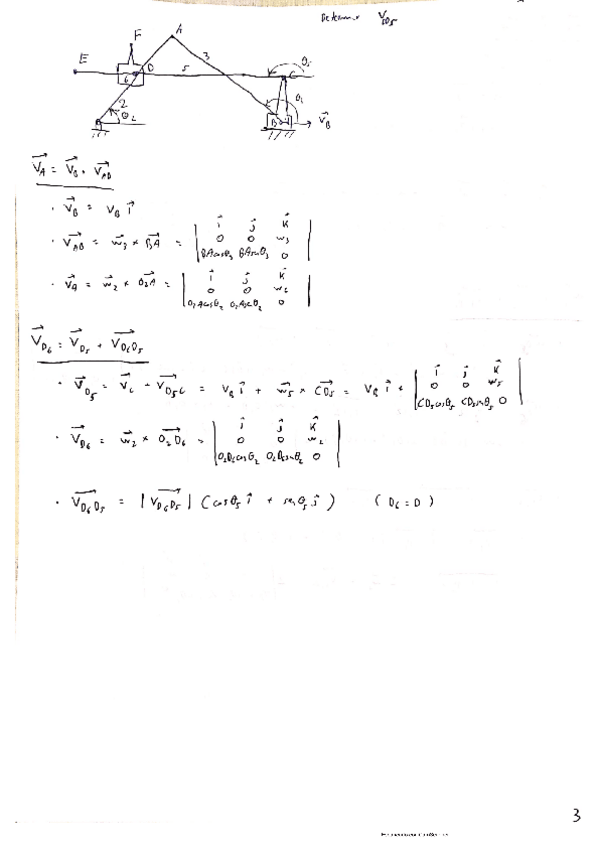 Determine V_D5
F
A
E
D
3
5
θ5
C
6
2
θ2
θ3
B
4
V⃗_B
V⃗_A = V⃗_B + V⃗_AB
· V⃗_B = V_B î
· V⃗_AB = w⃗_3 × BA⃗ = | î ĵ k̂
0 0 w_3
BAcosθ_3 BAsinθ_3 0 |
· V⃗_A = w⃗_2 × O_2A⃗ = | î ĵ k̂
0 0 w_2
O_2Acosθ_2 O_2Asinθ_2 0 |
V⃗_D6 = V⃗_D5 + V⃗_D6D5
· V⃗_D5 = V⃗_C + V⃗_D5C = V_B î + w⃗_5 × CD_5⃗ = V_B î + | î ĵ k̂
0 0 w_5
CD_5cosθ_5 CD_5sinθ_5 0 |
· V⃗_D6 = w⃗_2 × O_2D_6⃗ = | î ĵ k̂
0 0 w_2
O_2D_6cosθ_2 O_2D_6sinθ_2 0 |
· V⃗_D6D5 = |V⃗_D6D5| (cosθ_5 î + sinθ_5 ĵ) (D_6 = D)
3